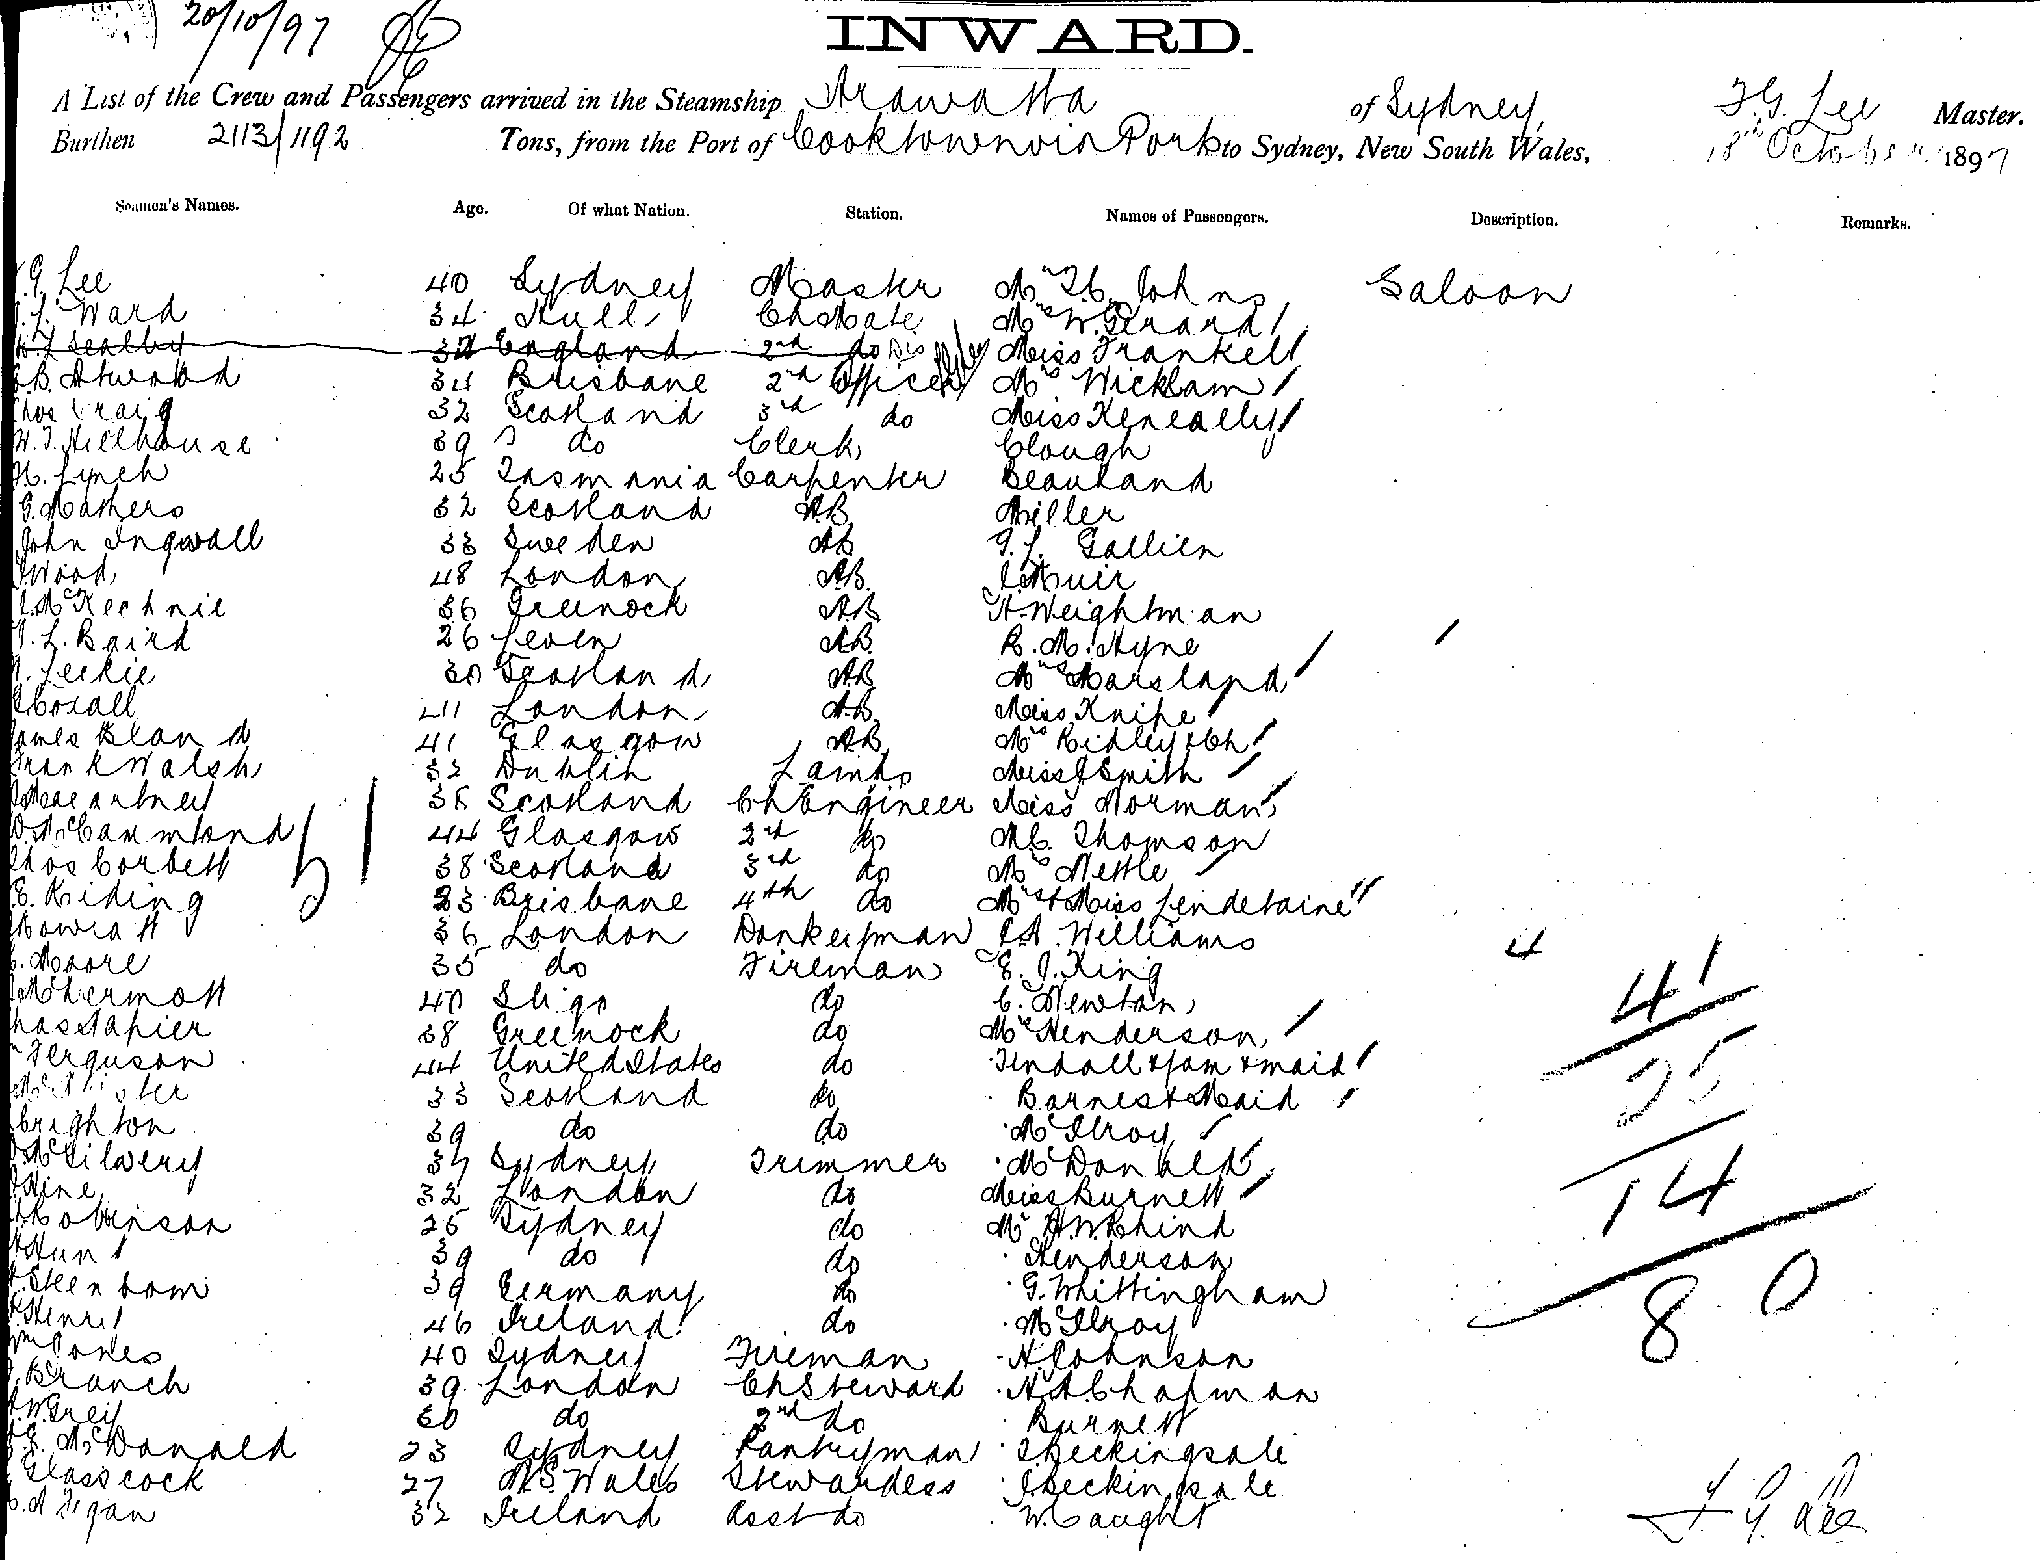 20/10/97
INWARD.
A List of the Crew and Passengers arrived in the Steamship Arawatta of Sydney, F G. Lee Master.
Burthen 2113/1192 Tons, from the Port of Cooktown via Ports to Sydney, New South Wales, 18th October 1897
Seamen's Names. Age. Of what Nation. Station. Names of Passengers. Description. Remarks.
G. Lee 40 Sydney Master Johns Saloon
Ward 34 Hull Ch Mate Mrs W. Gerard
Sealby England 2nd do Miss Frankell
B. Atwood 34 Brisbane 2nd Officer Wickham
Craig 32 Scotland 3rd do Miss Keneally
W. T. Hillhouse 39 do Clerk Clough
Lynch 25 Tasmania Carpenter Beauland
G. Mathers 32 Scotland AB Miller
John Ingwall 33 Sweden AB Gallien
Wood 48 London AB Muir
McKechnie 36 Greenock AB Weightman
L. Baird 26 Leven AB R. M. Hyne
Leckie 30 Scotland AB Mrs Marsland
Coxall 41 London AB Miss Knipe
James Bland 41 Glasgow AB Ridley & Ch
Frank Walsh 32 Dublin Lamps Miss Smith
Macartney Scotland Ch Engineer Miss Norman
44 Glasgow 2nd do Thomson
Thos Corbett 38 Scotland 3rd do Mettle
E. Riding 23 Brisbane 4th do
Mowatt 36 London Donkeyman A. Williams
Moore 35 do Fireman E. J. King 4 41
McDermott 40 Sligo do C. Newton
Chas Napier 38 Greenock do Henderson
Ferguson 44 United States do Tindall & fam & maid 25
33 Scotland do Barnes & Maid
39 do do McIlroy
McGilvery 37 Sydney Trimmer McDonald
32 London do Miss Burnett 14
Robinson 25 Sydney do Mr
Hunt 39 do do Henderson
Steenbom 39 Germany do G. Whittingham 80
Henry 46 Ireland do McIlroy
Wm Jones 40 Sydney Fireman H. Johnson
Branch 39 London Ch Steward H A Chapman
W. Grey do 2nd do Burnett
McDonald 23 Sydney Pantryman Checkingsale
Glasscock 27 N. S. Wales Stewardess Checkingsale
32 Ireland Asst do W. Caught
F. G. Lee